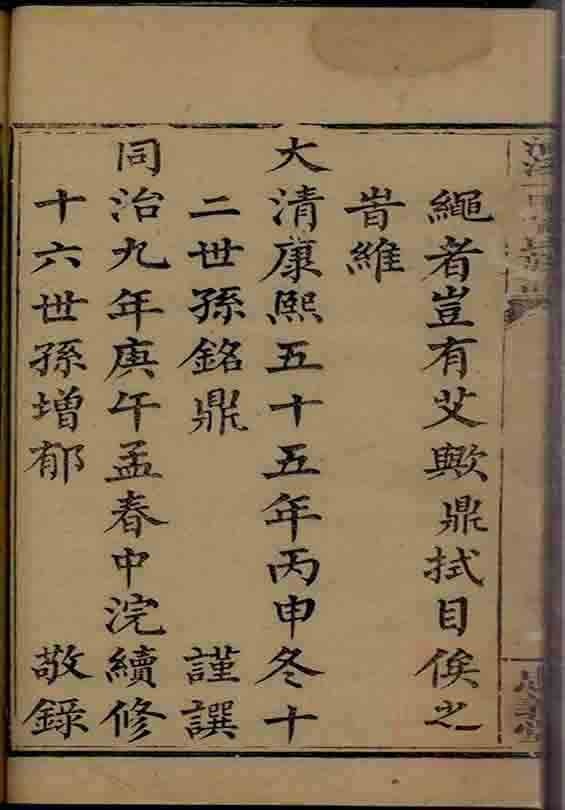 繩者豈有艾歟鼎拭目俟之
旹維
大清康熙五十五年丙申冬十
二世孫銘鼎 謹譔
同治九年庚午孟春中浣續修
十六世孫增郁 敬錄